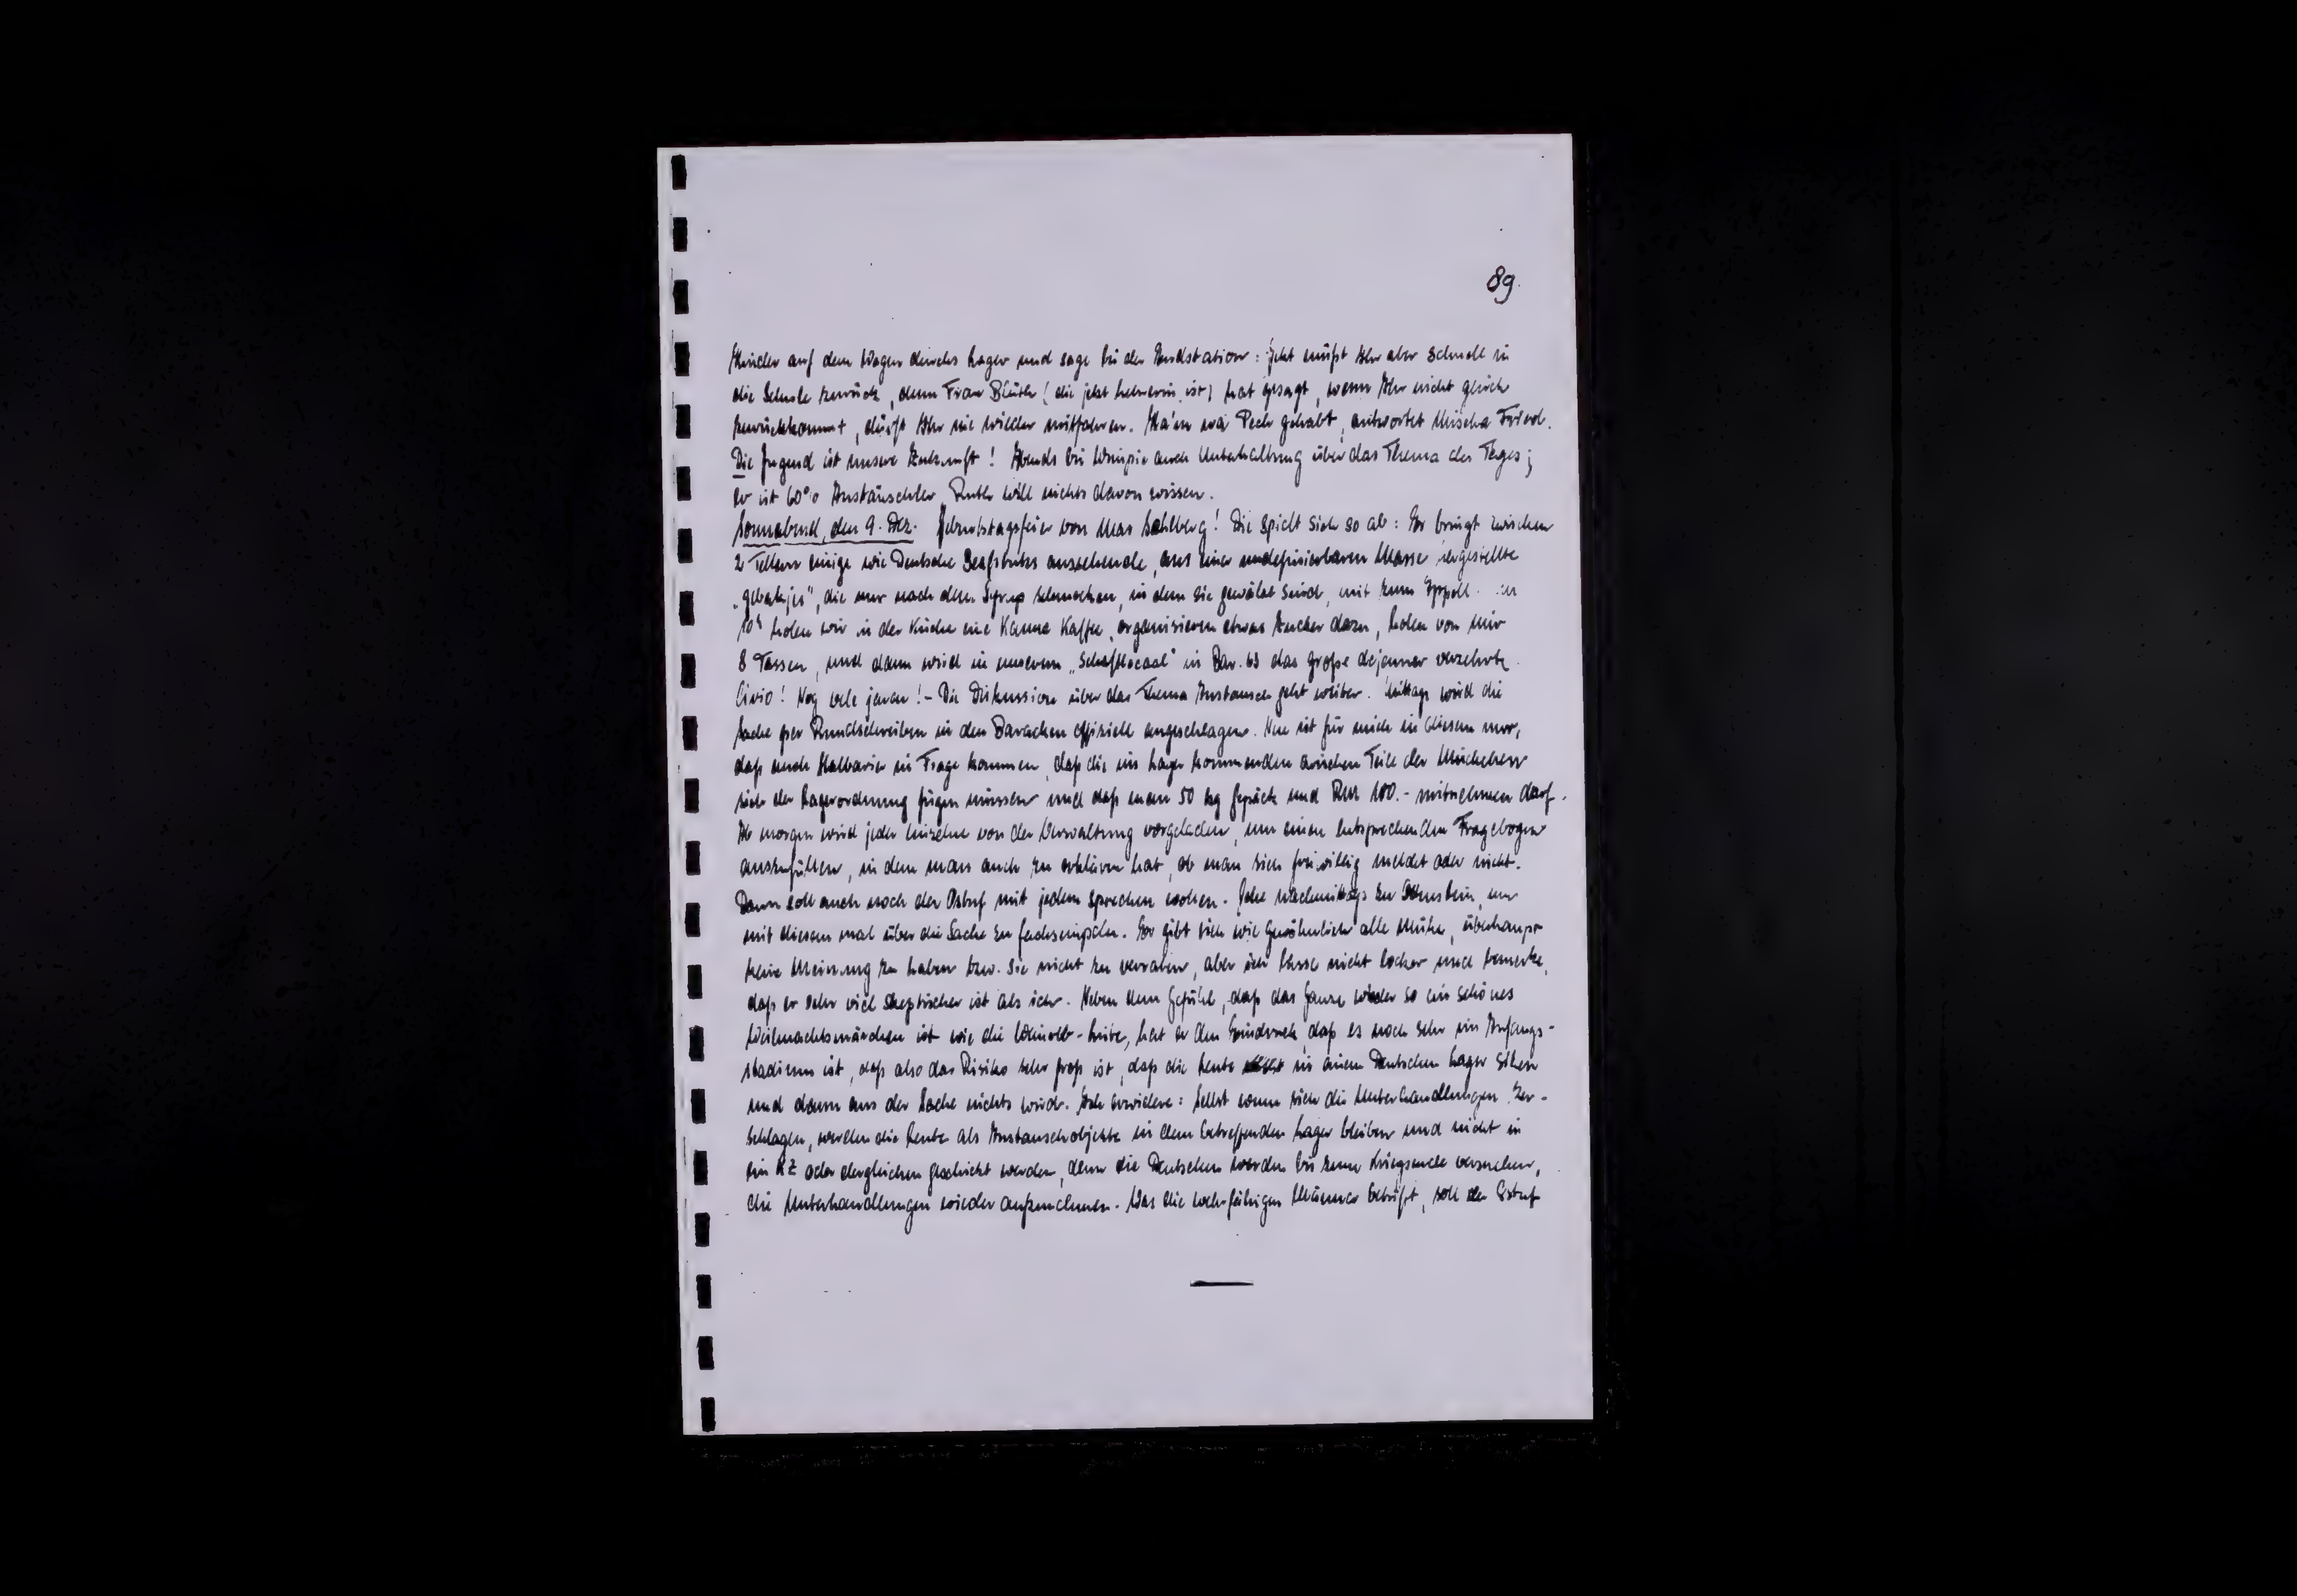 89.
Kinder auf dem Wagen durchs Lager und sage bei der Endstation: Jetzt müßt Ihr aber schnell in
die Schule zurück, denn Frau Blüth (die jetzt Lehrerin ist) hat gesagt, wenn Ihr nicht gleich
zurückkommt, dürft Ihr nie wieder mitfahren. Ha'm wa Pech gehabt, antwortet Mischa Fried.
Die Jugend ist unsere Zukunft! Abends bei auch Unterhaltung über das Thema des Tages;
er ist 60% Austäuschler, Ruth will nichts davon wissen.
Sonnabend, den 9. Dez. Geburtstagsfeier von Max Sahlberg! Die spielt sich so ab: Er bringt zwischen
2 Tellern einige wie Deutsche aussehende, aus einer undefinierbaren Masse hergestellte
„gebakjes", die nur nach dem Syrup schmecken, in dem sie gewälzt sind, mit zum Appell. Um
10h holen wir in der Küche eine Kanne Kaffee, organisieren etwas Zucker dazu, holen von mir
8 Tassen, und dann wird in unserem „Schaftlocaal" in Bar. 63 das große dejeuner verzehrt.
Civio! Nog vele jaren! – Die Diskussion über das Thema Austausch geht weiter. Mittags wird die
Sache per Rundschreiben in den Baracken offiziell angeschlagen. Neu ist für mich in diesem nur,
daß auch Halbarier in Frage kommen, daß die ins Lager kommenden arischen Teile der Mischehen
sich der Lagerordnung fügen müssen und daß man 50 kg Gepäck und RM 100.- mitnehmen darf.
Ab morgen wird jeder Einzelne von der Verwaltung vorgeladen, um einen entsprechenden Fragebogen
auszufüllen, in dem man auch zu erklären hat, ob man sich freiwillig meldet oder nicht.
Dann soll auch noch der Ostuf mit jedem sprechen wollen. Gehe nachmittags zu um
mit diesem mal über die Sache zu fachsimpeln. Er gibt sich wie gewöhnlich alle Mühe, überhaupt
keine Meinung zu haben bzw. sie nicht zu verraten, aber ich lasse nicht locker und bemerke,
daß er sehr viel skeptischer ist als ich. Neben dem Gefühl, daß das Ganze wieder so ein schönes
Weihnachtsmärchen ist wie die hat er den Eindruck, daß es noch sehr im Anfangs-
stadium ist, daß also das Risiko sehr groß ist, daß die Leute in einem Deutschen Lager sitzen
und dann aus der Sache nichts wird. Ich erwidere: Selbst wenn sich die Unterhandlungen zer-
schlagen, werden die Leute als Austauschobjekte in dem betreffenden Lager bleiben und nicht in
ein KZ oder dergleichen geschickt werden, denn die Deutschen werden bis zum Kriegsende versuchen,
die Unterhandlungen wieder aufzunehmen. Was die wehrfähigen Männer betrifft, soll der Ostuf